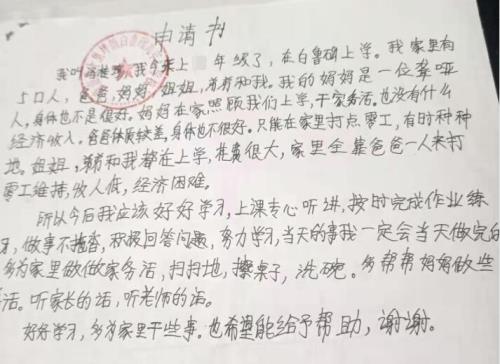 申请书
我叫 我今年上 年级了，在白鲁础上学。我家里有
5口人，爸爸，妈妈，姐姐，弟弟和我。我的妈妈是一位聋哑
人，身体也不是很好。妈妈在家照顾我们上学，干家务活。也没有什么
经济收入。爸爸体质较差，身体也不很好。只能在家里打点零工，有时种种
地。姐姐，弟弟和我都在上学，花费很大，家里全靠爸爸一人来打
零工维持，收入低，经济困难。
所以今后我应该好好学习，上课专心听讲，按时完成作业练
习，做事不拖沓，积极回答问题，努力学习，当天的事我一定会当天做完的
多为家里做做家务活，扫扫地，擦桌子，洗碗。多帮帮妈妈做些
活。听家长的话，听老师的话。
好好学习，多为家里干些事。也希望能给予帮助，谢谢。